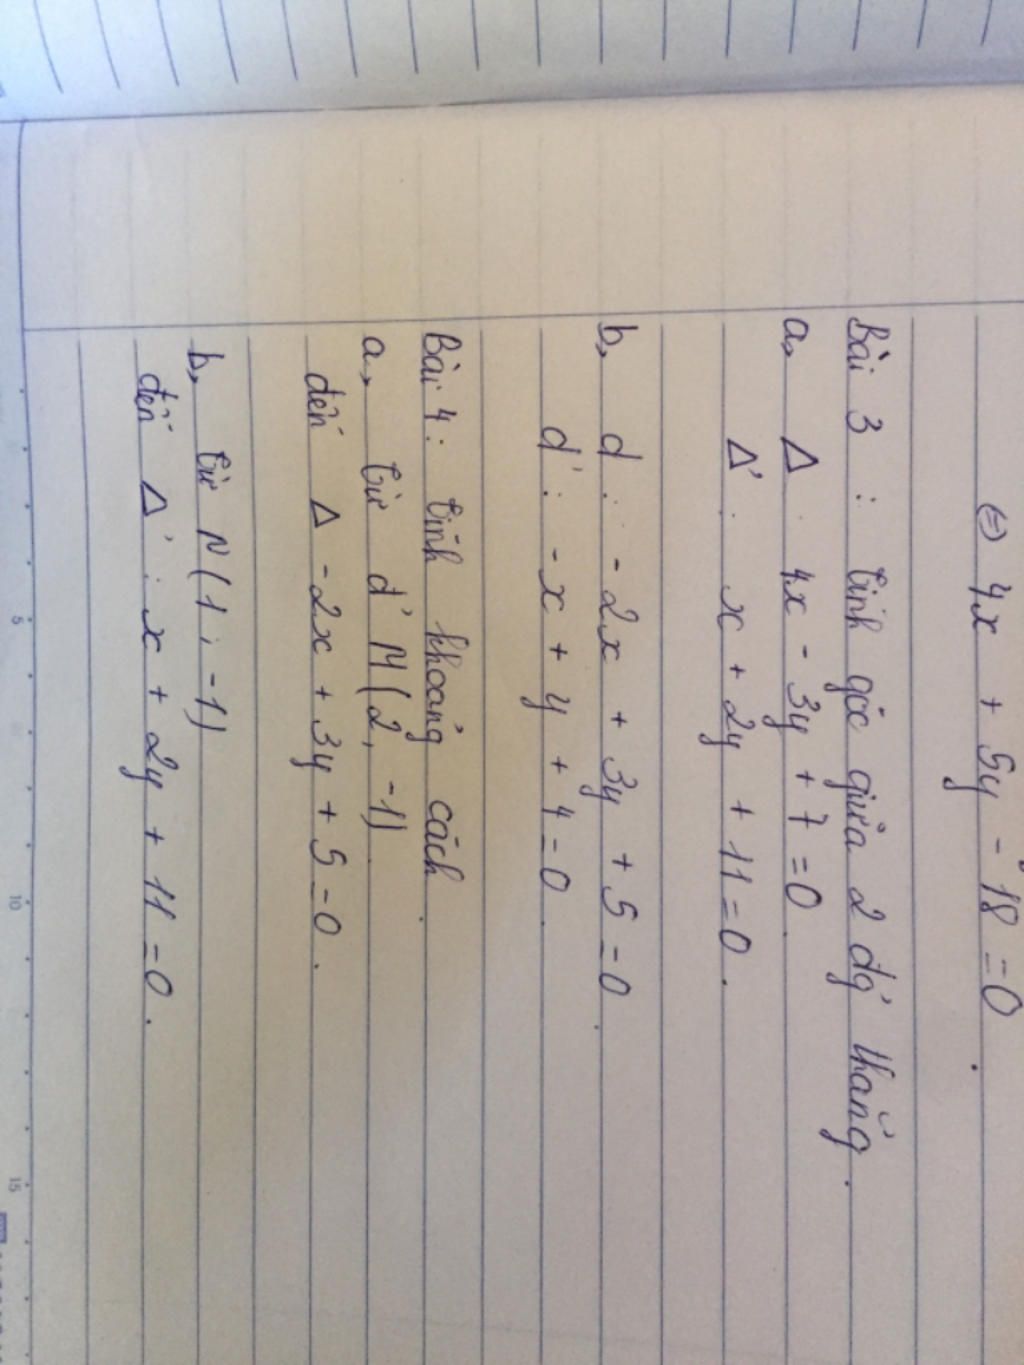 (=) 4x + 5y - 18 = 0.
Bài 3 : tính góc giữa 2 đg' thẳng.
a, Δ : 4x - 3y + 7 = 0.
Δ' : x + 2y + 11 = 0.
b, d : -2x + 3y + 5 = 0.
d' : -x + y + 4 = 0.
Bài 4 : tính khoảng cách.
a, từ đ' M(2, -1)
đến Δ -2x + 3y + 5 = 0.
b, từ N(1; -1)
đến Δ' : x + 2y + 11 = 0.
5 10 15